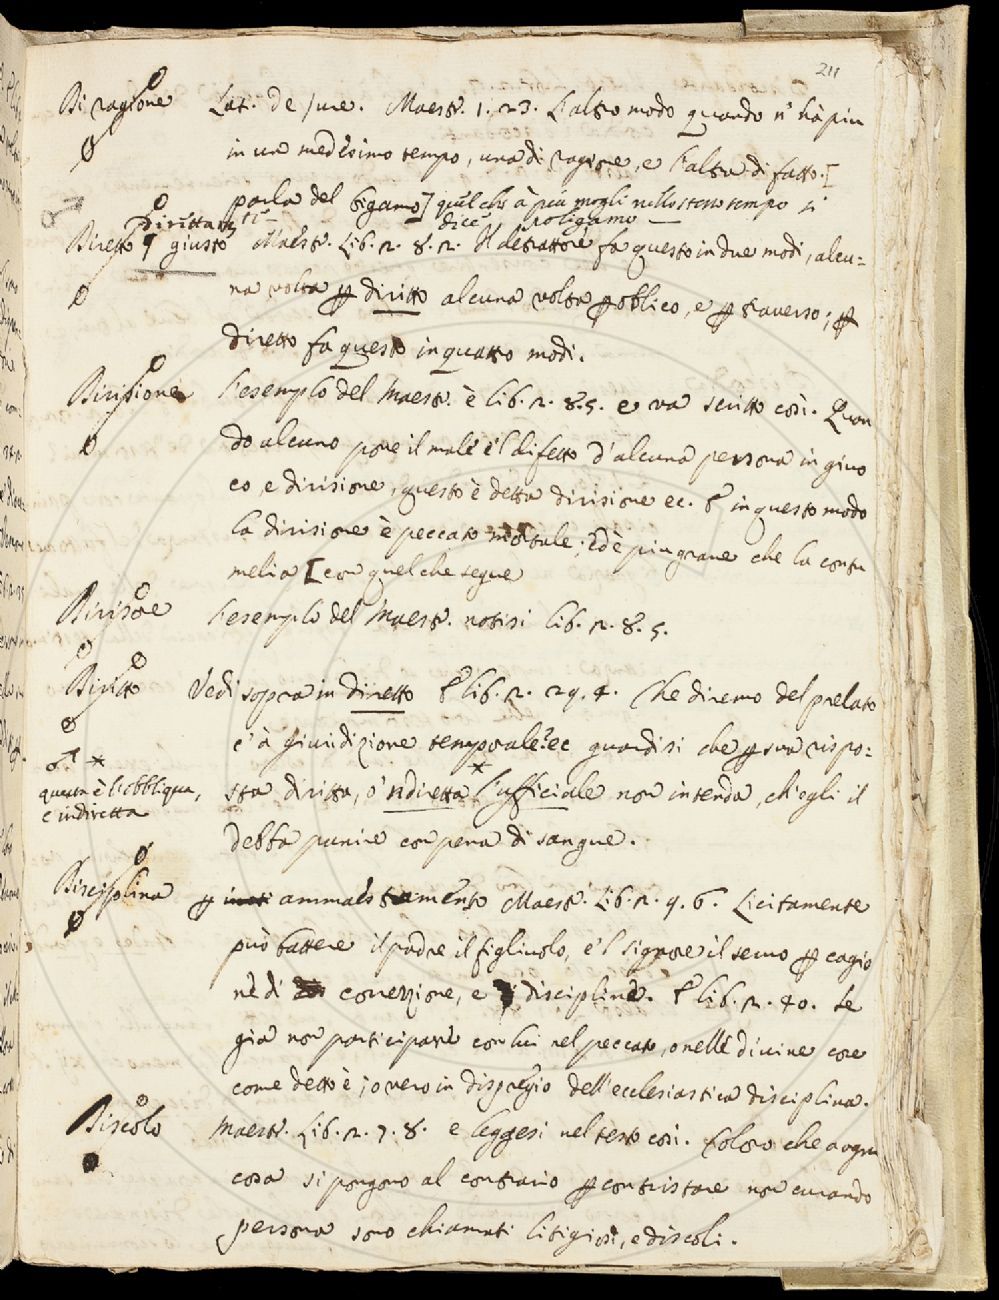 211
Di ragione Lat. de jure. Maestr. 1. 23. L'altro modo quando n'hà piu
in un medesimo tempo, una di ragione, e l'altra di fatto. [
parla del bigamo] quel che à piu mogli nello stesso tempo si
dice poligamo
Dirittam.te
Diretto giusto Maestr. Lib. 2. 8. 2. Il detrattore fa questo in due modi, alcu=
na volta ꝑ diritto alcuna volta ꝑ obblico, e ꝑ traverso; ꝑ
diretto fa questo in quatto modi.
Dirisione l'esemplo del Maestr. è lib. 2. 8. 5. e va scritto così. Quan
do alcuno pone il male e'l difetto d'alcuna persona in giuo
co, e dirisione, questo è detta dirisione ec. E in questo modo
la dirisione è peccato mortale; Ed è piu grave che la contu
melia [con quel che segue
Dirisore l'esemplo del Maestr. notisi lib. 2. 8. 5.
Diritto Vedi sopra in diretto E lib. 2. 29. 4. Che diremo del prelato
c'à giuridizione temporale? ec guardisi che ꝑ sua rispo=
sta diritta, o'ndiretta * l'ufficiale non intenda, ch'egli il
debba punire con pena di sangue.
*
questa è l'obbliqua,
e indiretta
Disciplina ꝑ ammaestramento Maestr. Lib. 2. 9. 6. Licitamente
può battere il padre il figliuolo, e'l signore il servo ꝑ cagio
ne di correzione, e disciplina. E lib. 2. 40. Se
già non participare con lui nel peccato, o nelle divine cose
come detto è; overo in dispregio dell'ecclesiastica disciplina.
Discolo Maestr. Lib. 2. 7. 8. e leggesi nel testo così. Coloro che a ogni
cosa si pongono al contrario ꝑ contristare non curando
persona sono chiamati litigiosi, e discoli.